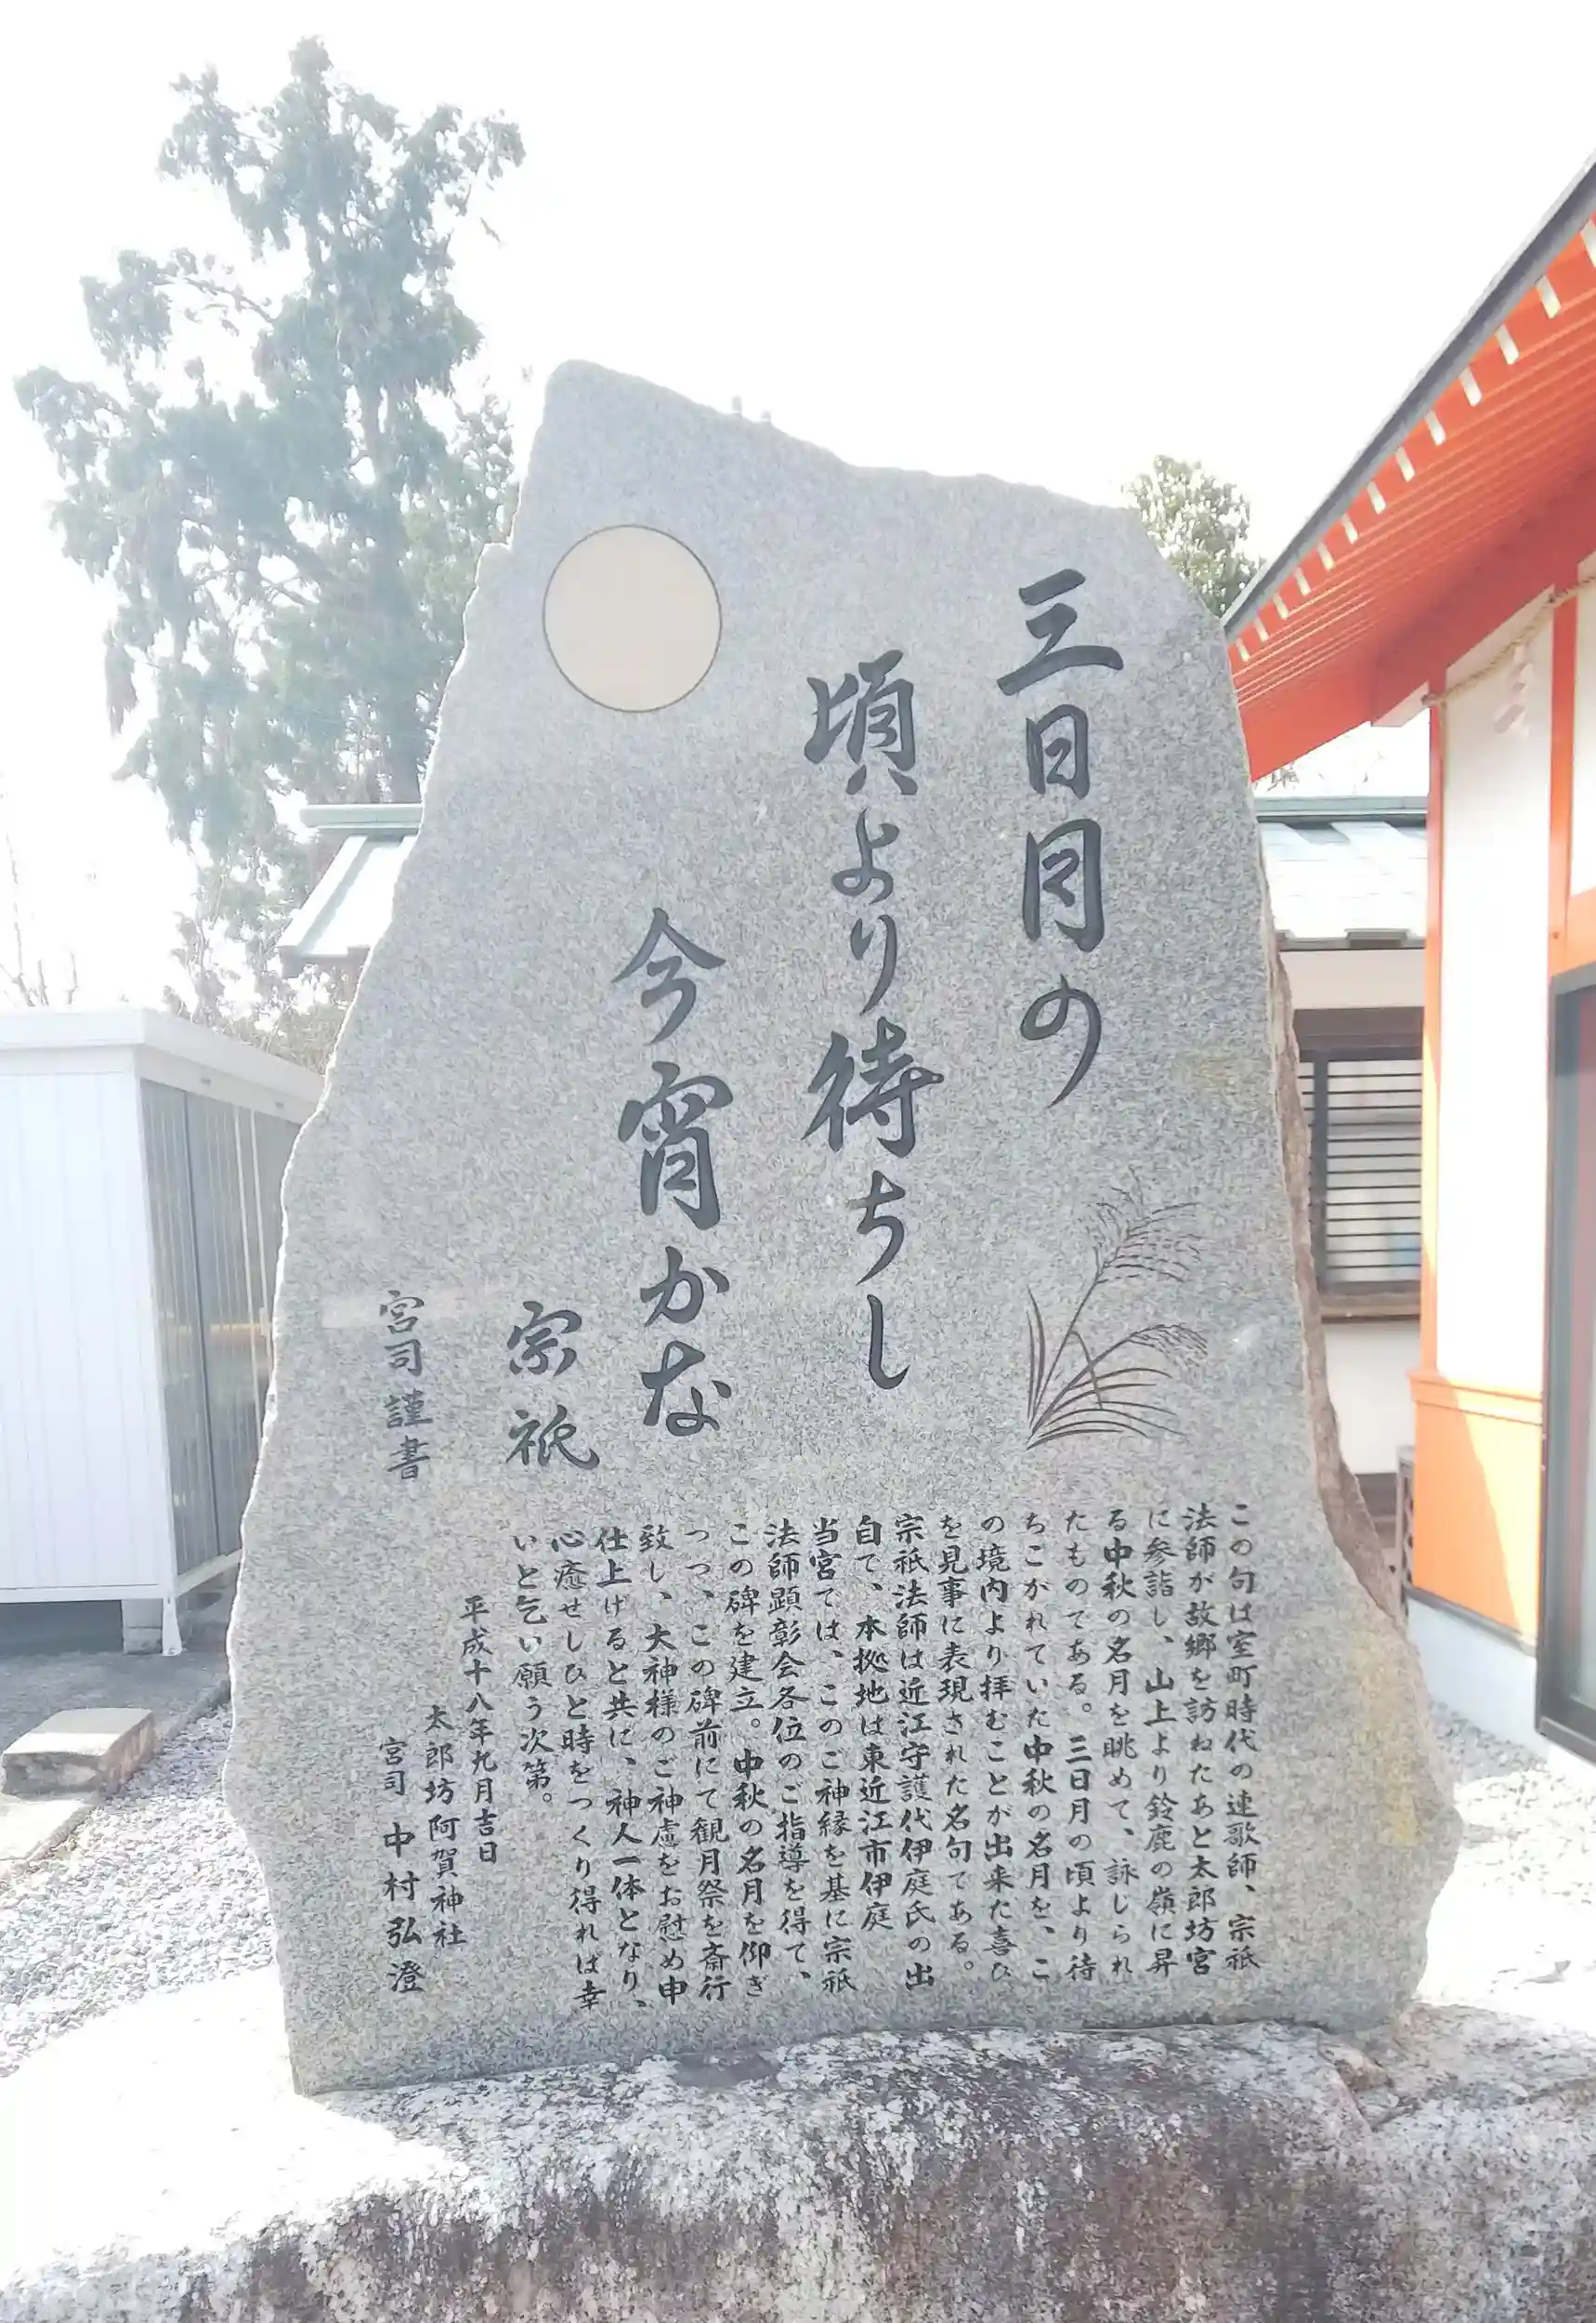 三日月の
頃より待ちし
今宵かな
宗祇
宮司謹書
この句は室町時代の連歌師、宗祇
法師が故郷を訪ねたあと太郎坊宮
に参詣し、山上より鈴鹿の嶺に昇
る中秋の名月を眺めて、詠じられ
たものである。三日月の頃より待
ちこがれていた中秋の名月を、こ
の境内より拝むことが出来た喜び
を見事に表現された名句である。
宗祇法師は近江守護代伊庭氏の出
自で、本拠地は東近江市伊庭
当宮では、このご神縁を基に宗祇
法師顕彰会各位のご指導を得て、
この碑を建立。中秋の名月を仰ぎ
つつ、この碑前にて観月祭を斎行
致し、大神様のご神慮をお慰め申
仕上げると共に、神人一体となり、
心癒せしひと時をつくり得れば幸
いと乞い願う次第。
平成十八年九月吉日
太郎坊阿賀神社
宮司 中村弘澄